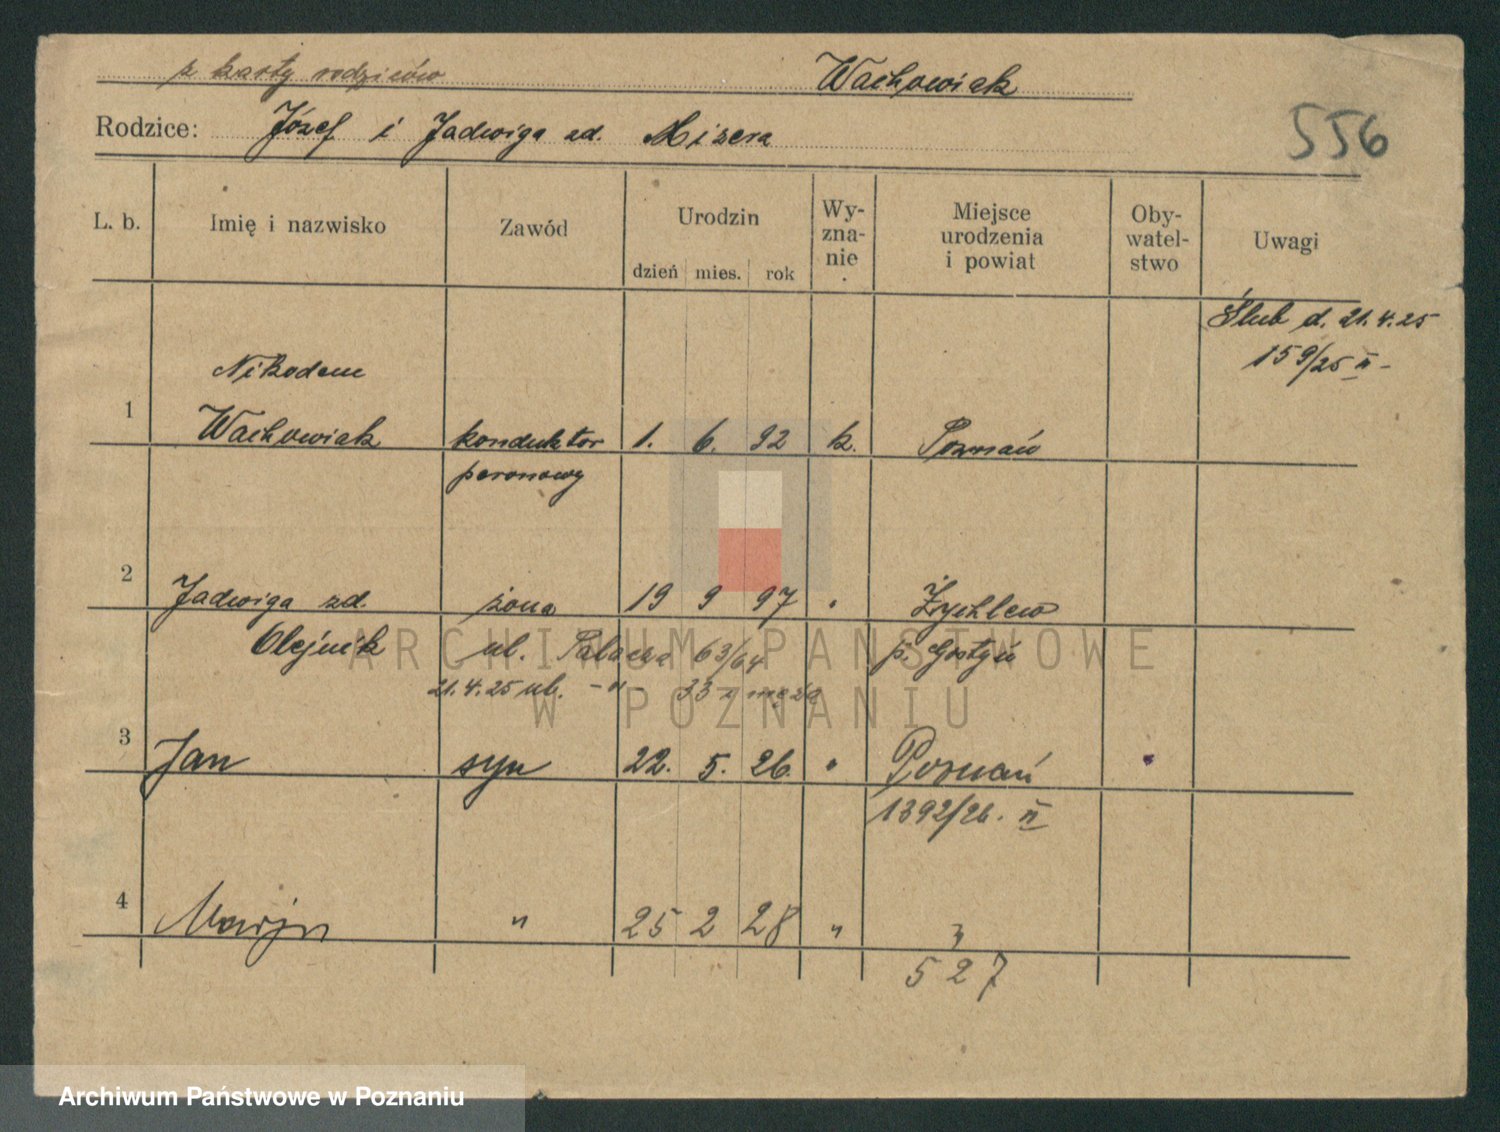 z karty rodziców Wachowiak
Rodzice: Józef i Jadwiga zd. Mizera
556
L. b. Imię i nazwisko Zawód Urodzin Wy- Miejsce Oby- Uwagi
zna- urodzenia watel-
nie i powiat stwo
dzień mies. rok
Ślub d. 21.4.25
159/25 II -
Nikodem
1 Wachowiak konduktor 1. 6. 92 k. Poznań
peronowy
2 Jadwiga zd. żona 19 9 97 " Żychlewo
Olejnik ul. 63/64 p. Gostyń
21.4.25 ul. -"- 33 z męża
3 Jan syn 22. 5. 26. " Poznań "
1392/26. II
4 Marjan " 25 2 28 " "
527
ARCHIWUM PAŃSTWOWE
W POZNANIU
Archiwum Państwowe w Poznaniu